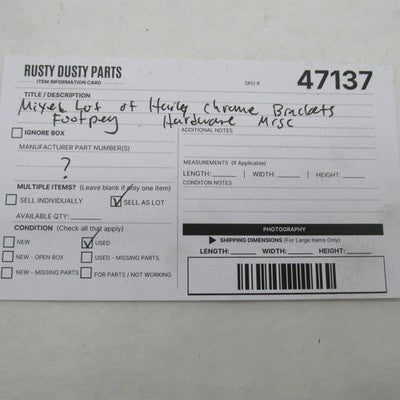 RUSTY DUSTY PARTS
ITEM INFORMATION CARD
SKU #
47137
TITLE / DESCRIPTION
Mixed Lot of Harley Chrome Brackets
Footpeg Hardware Misc
IGNORE BOX
MANUFACTURER PART NUMBER(S)
?
MULTIPLE ITEMS? (Leave blank if only one item)
SELL INDIVIDUALLY SELL AS LOT
AVAILABLE QTY:
CONDITION (Check all that apply)
NEW USED
NEW - OPEN BOX USED - MISSING PARTS
NEW - MISSING PARTS FOR PARTS / NOT WORKING
ADDITIONAL NOTES
MEASUREMENTS (If Applicable)
LENGTH: WIDTH: HEIGHT:
CONDITON NOTES
PHOTOGRAPHY
SHIPPING DIMENSIONS (For Large Items Only)
LENGTH: WIDTH: HEIGHT: